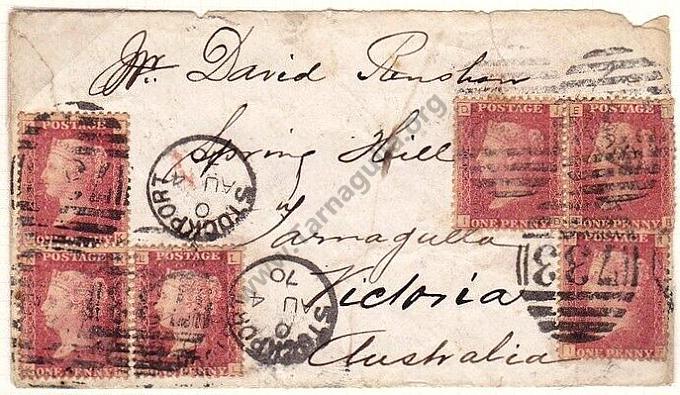 Mr. David Renshaw
Spring Hill
Tarnagulla
Victoria
Australia
POSTAGE
ONE PENNY
POSTAGE
ONE PENNY
POSTAGE
ONE PENNY
POSTAGE
POSTAGE
ONE PENNY
POSTAGE
ONE PENNY
STOCKPORT
AU
STOCKPORT
AU
70
733
www.tarnagulla.org